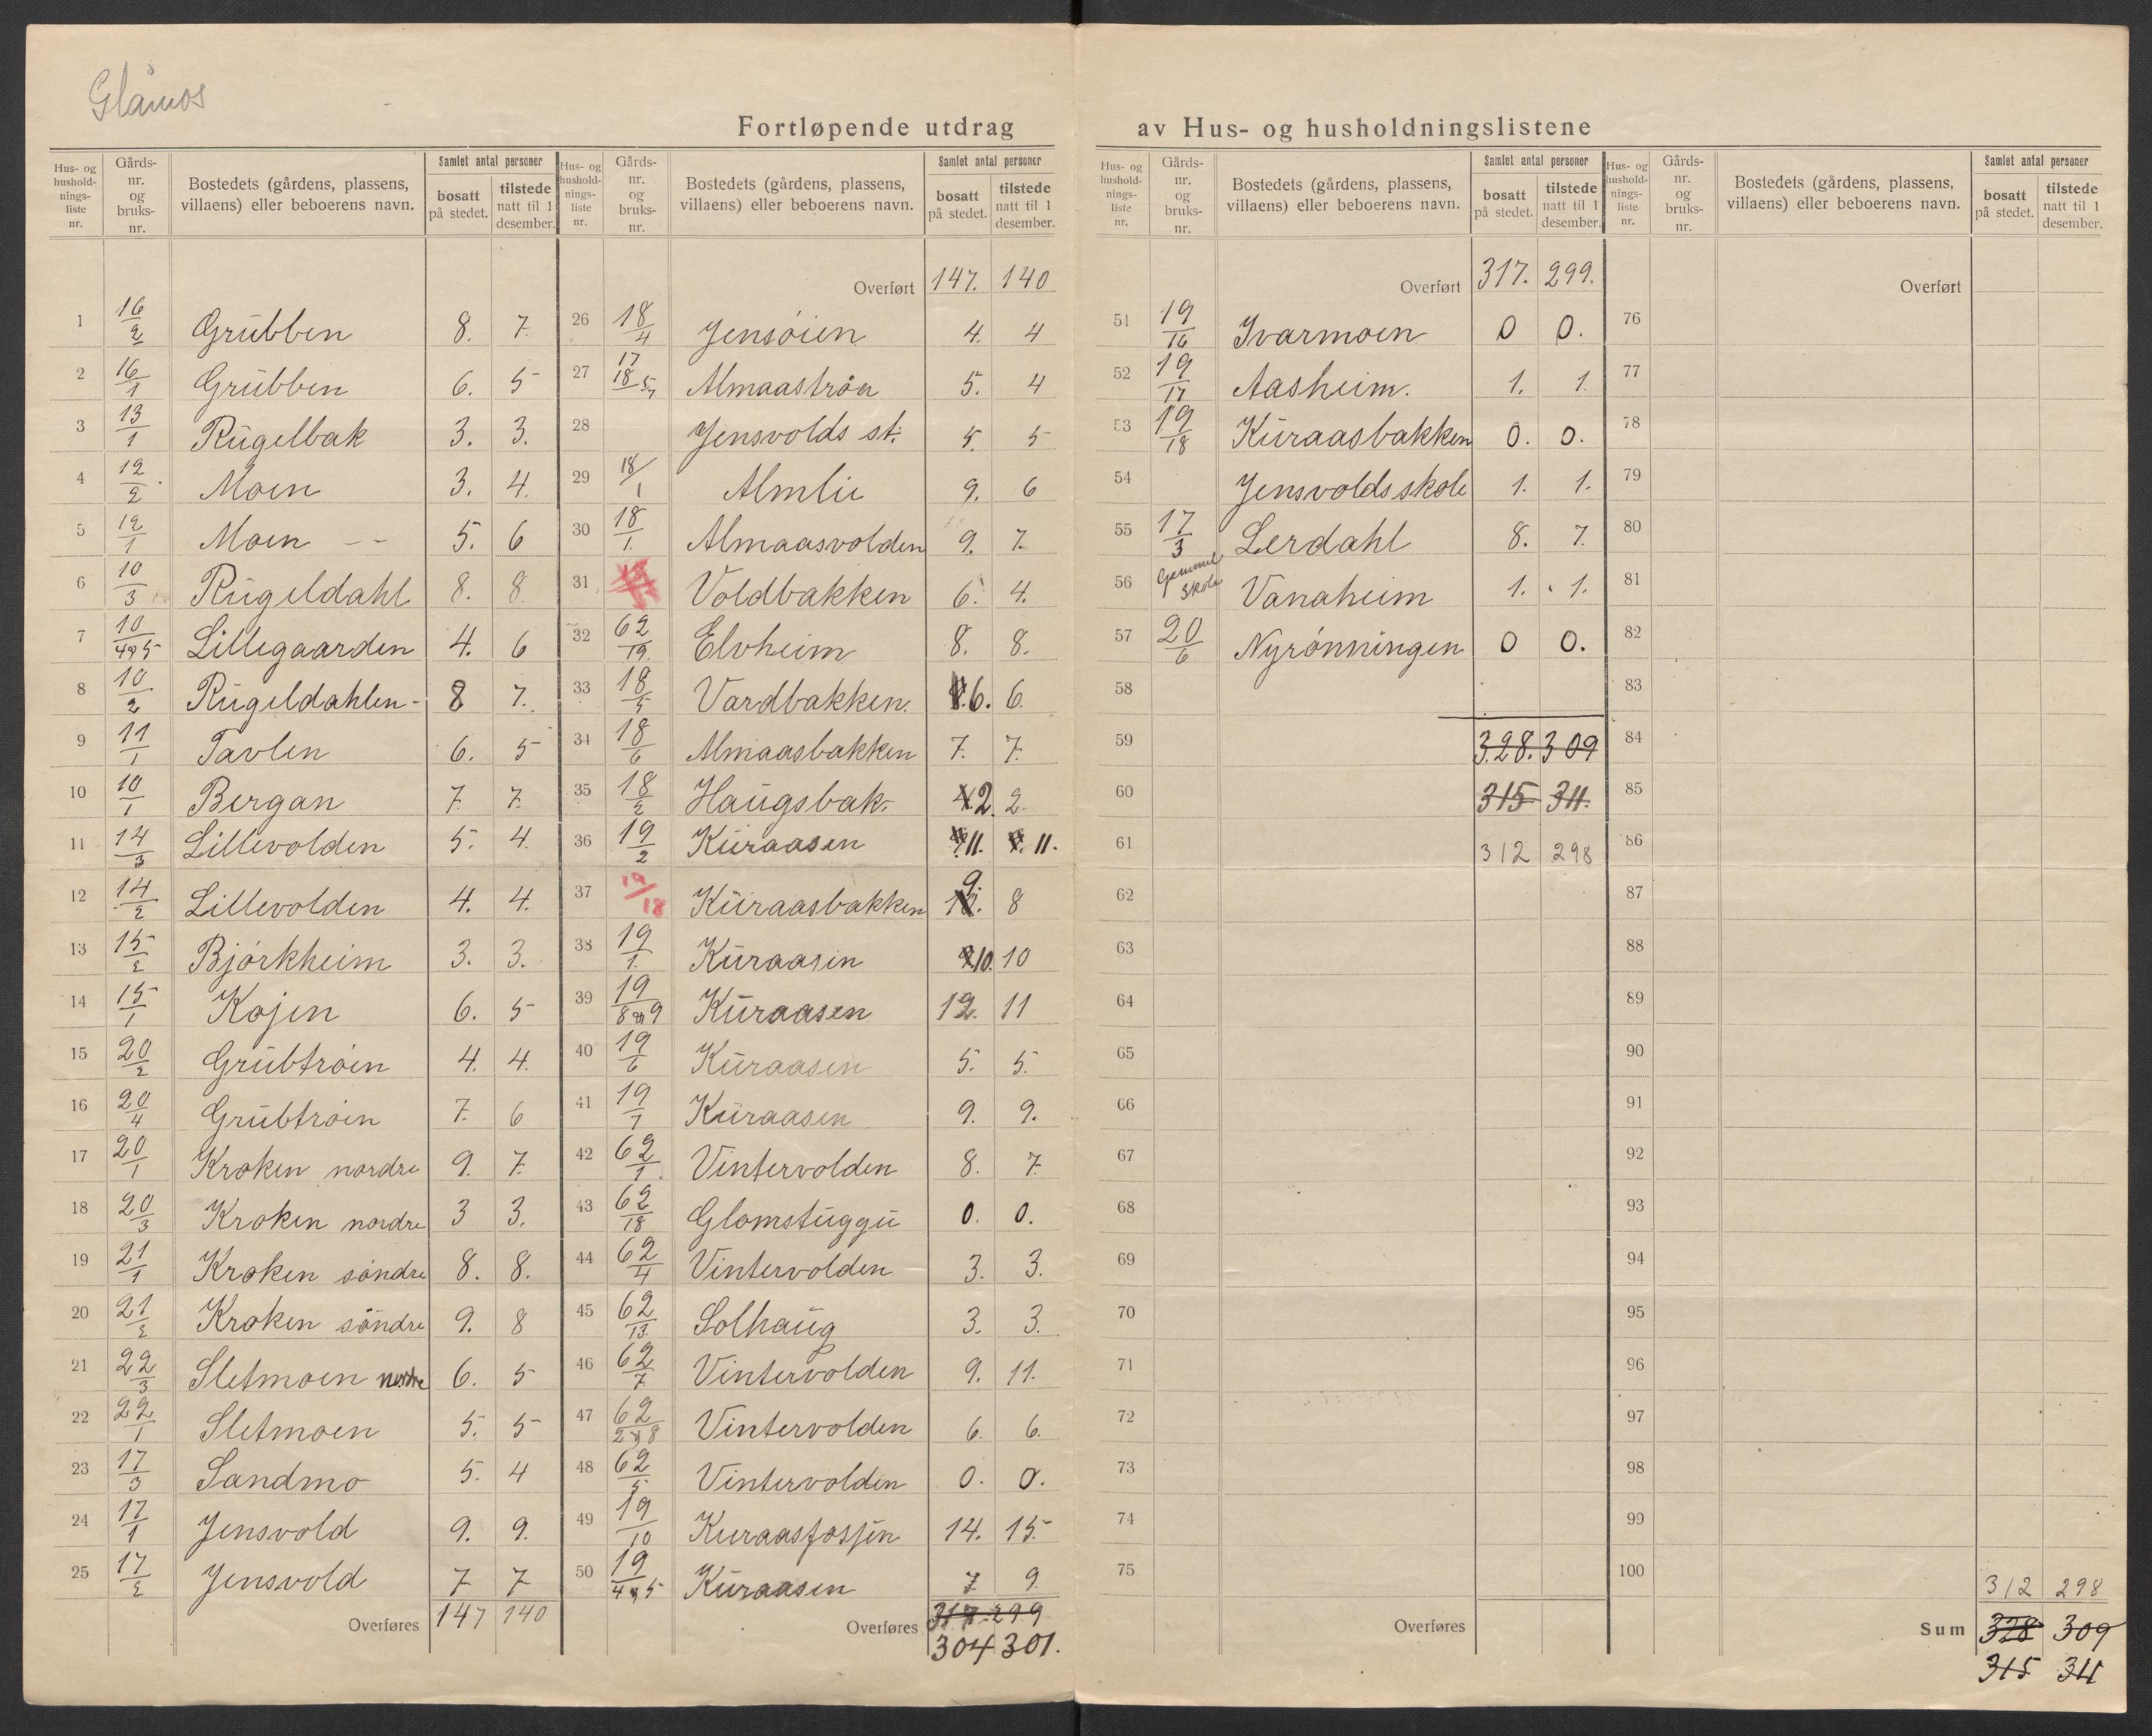 Glåmos
Fortløpende utdrag av Hus- og husholdningslistene
Hus- og husholdnings-liste nr. | Gårds-nr. og bruks-nr. | Bostedets (gårdens, plassens, villaens) eller beboerens navn. | Samlet antal personer | bosatt på stedet. | tilstede natt til 1 desember.
1 16/2 Grübben 8. 7.
2 16/1 Grübben 6. 5
3 13/1 Rügelbak 3. 3.
4 12/2 Moen 3. 4.
5 12/1 Moen 5. 6
6 10/3 Rügeldahl 8. 8.
7 10/4 og 5 Lillegaarden 4. 6
8 10/2 Rügeldahlen 8 7.
9 11/1 Tavlen 6. 5
10 10/1 Bergan 7. 7.
11 14/3 Lillevolden 5. 4.
12 14/2 Lillevolden 4. 4.
13 15/2 Bjórkheim 3. 3.
14 15/1 Kojen 6. 5
15 20/2 Grübtróin 4. 4.
16 20/4 Grübtróin 7. 6
17 20/1 Kroken nordre 9. 7.
18 20/3 Kroken nordre 3 3.
19 21/1 Kroken söndre 8. 8.
20 21/2 Kroken söndre 9. 8
21 22/3 Sletmoen nordre 6. 5
22 22/1 Sletmoen 5. 5
23 17/3 Sandmo 5. 4
24 17/1 Jensvold 9. 9.
25 17/2 Jensvold 7 7
Overføres 147 140
Hus- og husholdnings-liste nr. | Gårds-nr. og bruks-nr. | Bostedets (gårdens, plassens, villaens) eller beboerens navn. | Samlet antal personer | bosatt på stedet. | tilstede natt til 1 desember.
Overført 147. 140
26 18/4 Jensóien 4. 4
27 17 18/5 Almaastróa 5. 4
28 Jensvolds st: 5. 5
29 18/1 Almlie 9. 6
30 18/1. Almaasvolden 9. 7.
31 Voldbakken 6. 4.
32 62/19. Elvheim 8. 8.
33 18/5 Vardbakken. 6. 6.
34 18/6 Almaasbakken 7. 7.
35 18/2 Haügsbak- 2. 2.
36 19/2 Küraasen 11. 11.
37 19/18 Küraasbakken 9. 8
38 19/1. Küraasin 10. 10
39 19/8 og 9 Küraasen 12. 11
40 19/6 Küraasen 5. 5.
41 19/7 Küraasen 9. 9.
42 62/1. Vintervolden 8. 7.
43 62/18 Glomstüggü 0. 0.
44 62/4 Vintervolden 3. 3.
45 62/13. Solhaüg 3. 3.
46 62/7. Vintervolden 9. 11.
47 62/2 og 8 Vintervolden 6. 6.
48 62/5 Vintervolden 0. 0.
49 19/10 Kuraasfosjen 14. 15
50 19/4 og 5 Küraasen 7 9
Overføres 317. 299
304 301.
Hus- og husholdnings-liste nr. | Gårds-nr. og bruks-nr. | Bostedets (gårdens, plassens, villaens) eller beboerens navn. | Samlet antal personer | bosatt på stedet. | tilstede natt til 1 desember.
Overført 317. 299.
51 19/16 Ivarmoen 0 0.
52 19/17 Aasheim. 1. 1.
53 19/18 Küraasbakken 0. 0.
54 Jensvolds skole 1. 1.
55 17/3 Lerdahl 8. 7.
56 Gammel skole Vanaheim 1. 1.
57 20/6 Nyrónningen 0 0.
58
59 328. 309
60 315 311.
61 312 298
62
63
64
65
66
67
68
69
70
71
72
73
74
75
Overføres
Hus- og husholdnings-liste nr. | Gårds-nr. og bruks-nr. | Bostedets (gårdens, plassens, villaens) eller beboerens navn. | Samlet antal personer | bosatt på stedet. | tilstede natt til 1 desember.
Overført
76
77
78
79
80
81
82
83
84
85
86
87
88
89
90
91
92
93
94
95
96
97
98
99
100
312 298
Sum 328 309
315 311